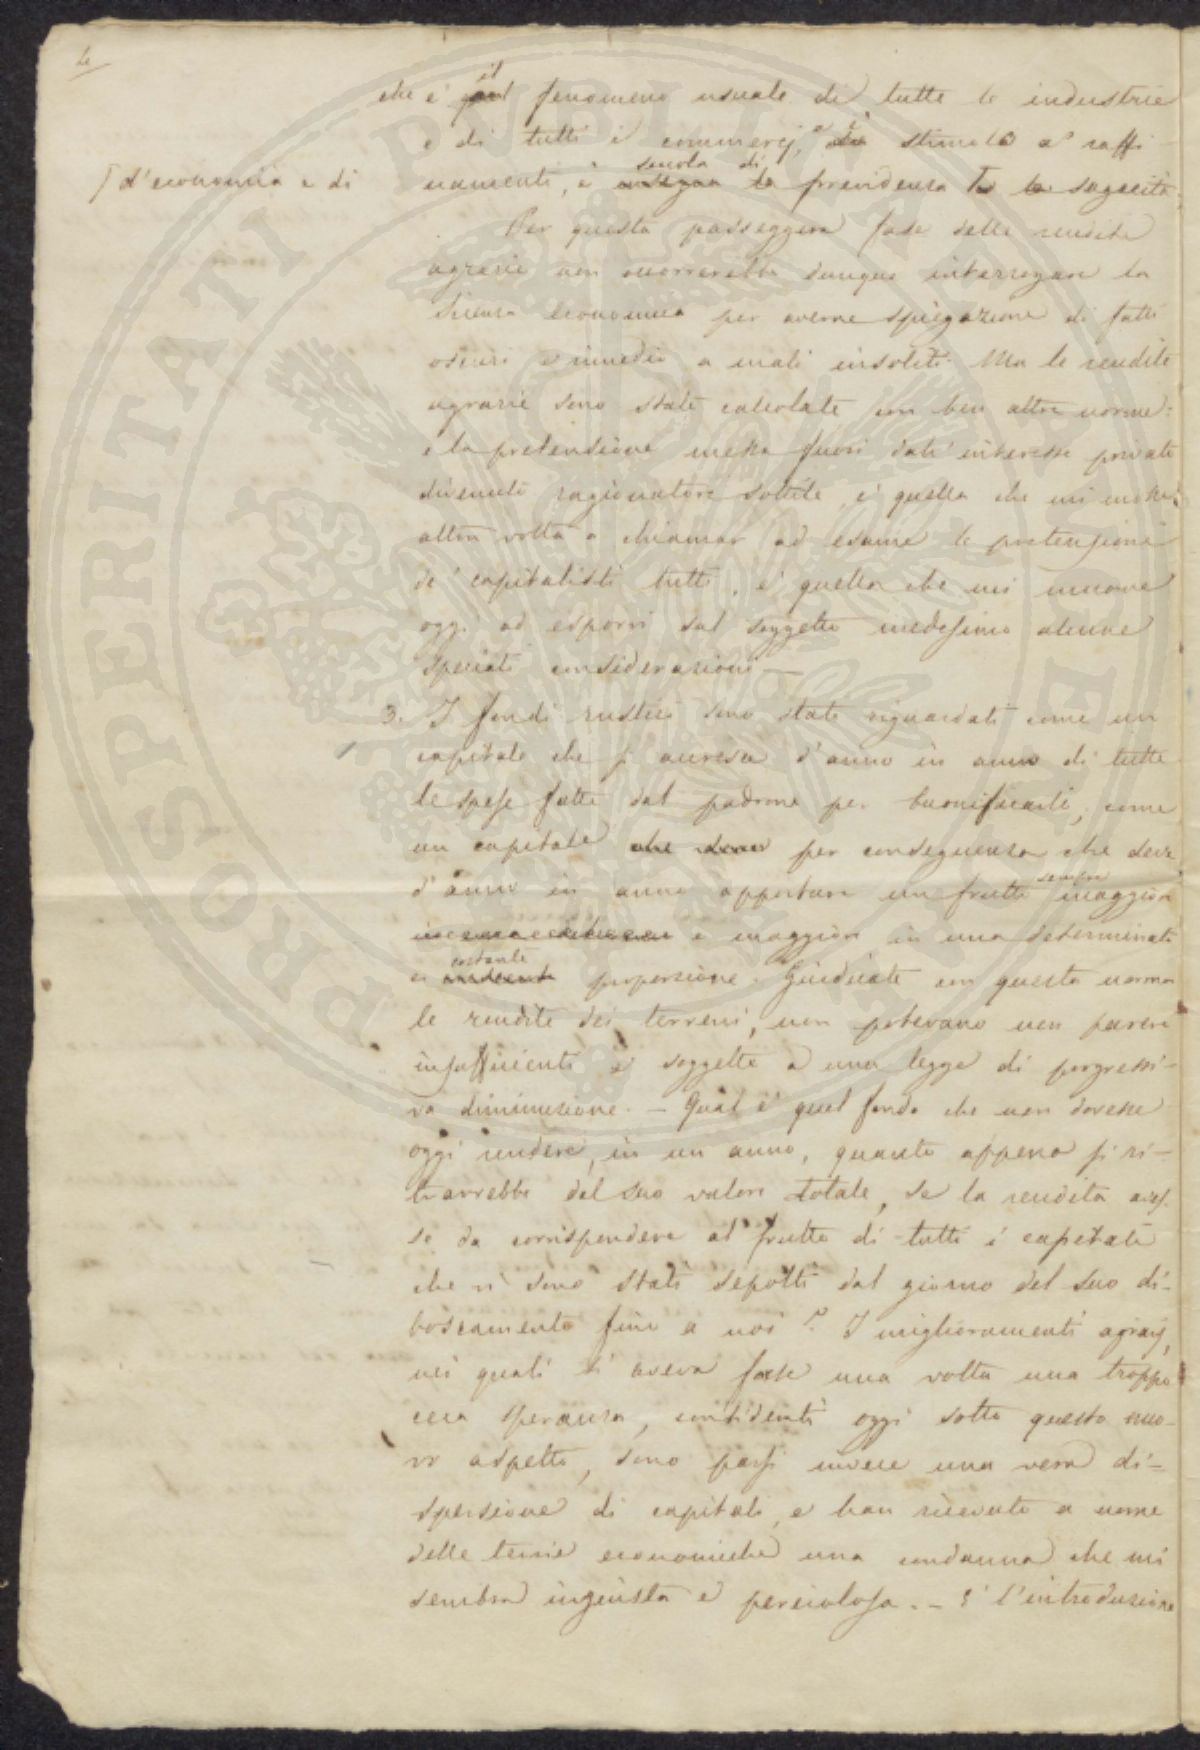 4
che è il fenomeno usuale di tutte le industrie
e di tutti i commercj, e è stimolo a raffi-
namenti, è scuola di previdenza
d'economia e di
sagacità.
Per questa passeggera fase delle rendite
agrarie non occorrerebbe dunque interrogare la
scienza economica per averne spiegazione di fatti
oscuri e rimedio a mali insoliti. Ma le rendite
agrarie sono state calcolate con ben altre norme:
e la pretensione messa fuori dall'interesse privato
divenuto ragionatore sottile, è quella che mi
altra volta a chiamar ad esame le pretensioni
de' capitalisti tutti, è quella che mi muove
oggi ad esporvi sul soggetto medesimo alcune
speciali considerazioni —
3. I fondi rustici sono stati riguardati come un
capitale che si accresca d'anno in anno di tutte
le spese fatte dal padrone per buonificarli, come
un capitale per conseguenza che deve
d'anno in anno apportare un frutto sempre maggiore
e maggiore in una determinata
e costante proporzione. Giudicate con questa norma
le rendite dei terreni, non potevano non parere
insufficienti e soggette a una legge di progressi-
va diminuzione. — Qual è quel fondo che non dovesse
oggi rendere, in un anno, quanto appena si ri-
trarrebbe dal suo valore totale, se la rendita aves-
se da corrispondere al frutto di tutti i capitali
che vi sono stati sepolti dal giorno del suo di-
boscamento fino a noi? I miglioramenti agrarj,
nei quali si aveva forse una volta una troppo
cieca speranza, considerati oggi sotto questo nuo-
vo aspetto, sono parsi invece una vera di-
spersione di capitali, e han ricevuto a nome
delle teorie economiche una condanna che mi
sembra ingiusta e pericolosa. — È l'introduzione
PROSPERITATI PUBLICAE AUGENDAE